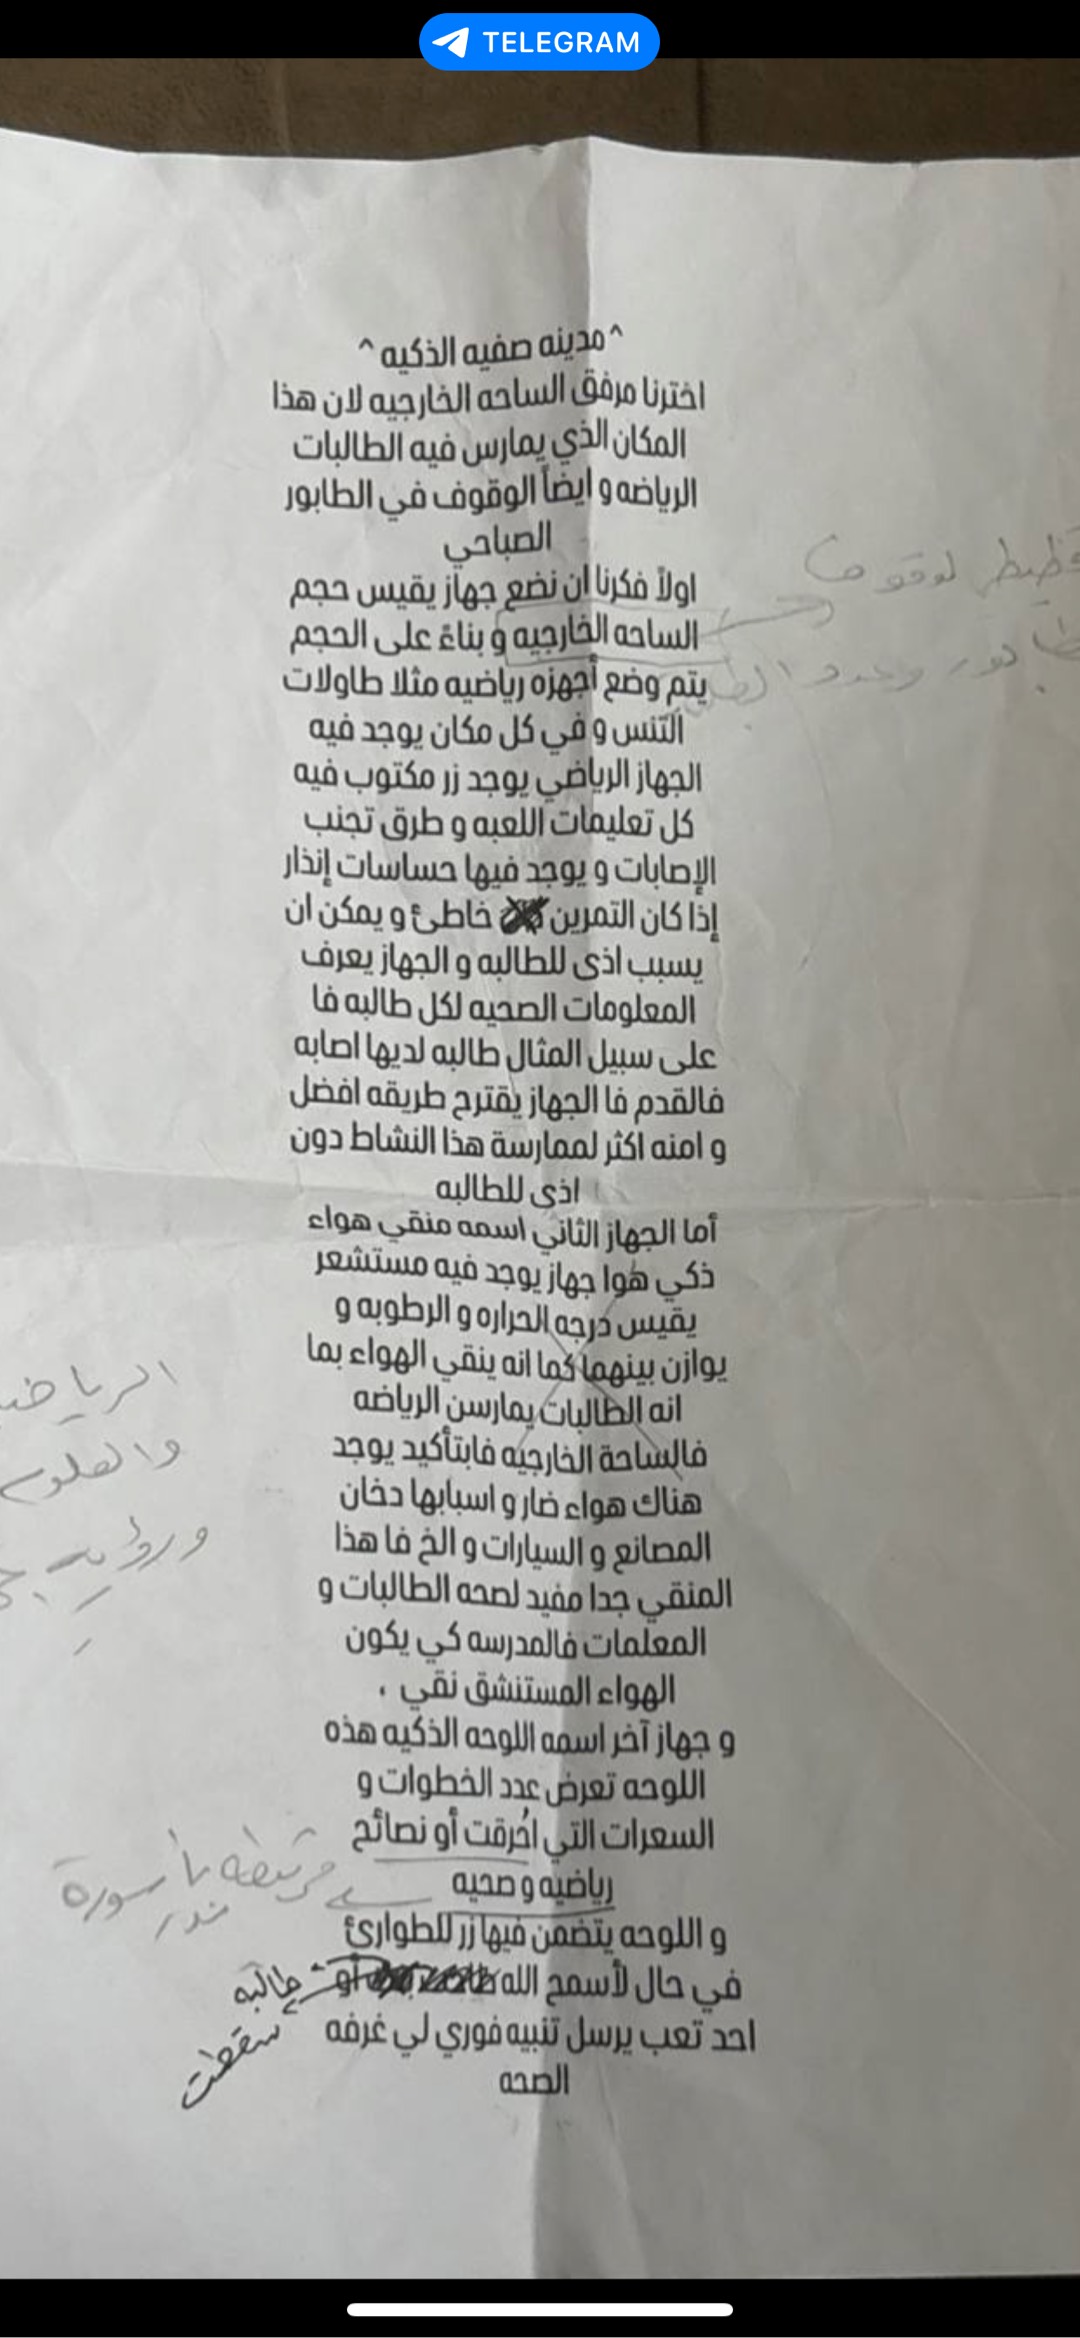 TELEGRAM
^ مدينه صفيه الذكيه ^
اخترنا مرفق الساحه الخارجيه لان هذا
المكان الذي يمارس فيه الطالبات
الرياضه و ايضاً الوقوف في الطابور
الصباحي
اولاً فكرنا ان نضع جهاز يقيس حجم
الساحه الخارجيه و بناءً على الحجم
يتم وضع أجهزه رياضيه مثلا طاولات
التنس و في كل مكان يوجد فيه
الجهاز الرياضي يوجد زر مكتوب فيه
كل تعليمات اللعبه و طرق تجنب
الإصابات و يوجد فيها حساسات إنذار
إذا كان التمرين خاطئ و يمكن ان
يسبب اذى للطالبه و الجهاز يعرف
المعلومات الصحيه لكل طالبه فا
على سبيل المثال طالبه لديها اصابه
فالقدم فا الجهاز يقترح طريقه افضل
و امنه اكثر لممارسة هذا النشاط دون
اذى للطالبه
أما الجهاز الثاني اسمه منقي هواء
ذكي هوا جهاز يوجد فيه مستشعر
يقيس درجه الحراره و الرطوبه و
يوازن بينهما كما انه ينقي الهواء بما
انه الطالبات يمارسن الرياضه
فالساحة الخارجيه فابتأكيد يوجد
هناك هواء ضار و اسبابها دخان
المصانع و السيارات و الخ فا هذا
المنقي جدا مفيد لصحه الطالبات و
المعلمات فالمدرسه كي يكون
الهواء المستنشق نقي ،
و جهاز آخر اسمه اللوحه الذكيه هذه
اللوحه تعرض عدد الخطوات و
السعرات التي احُرقت أو نصائح
رياضيه و صحيه
و اللوحه يتضمن فيها زر للطوارئ
في حال لأسمح الله أو طالبه
سقطت
احد تعب يرسل تنبيه فوري لي غرفه
الصحه
وعدد
والعلوم